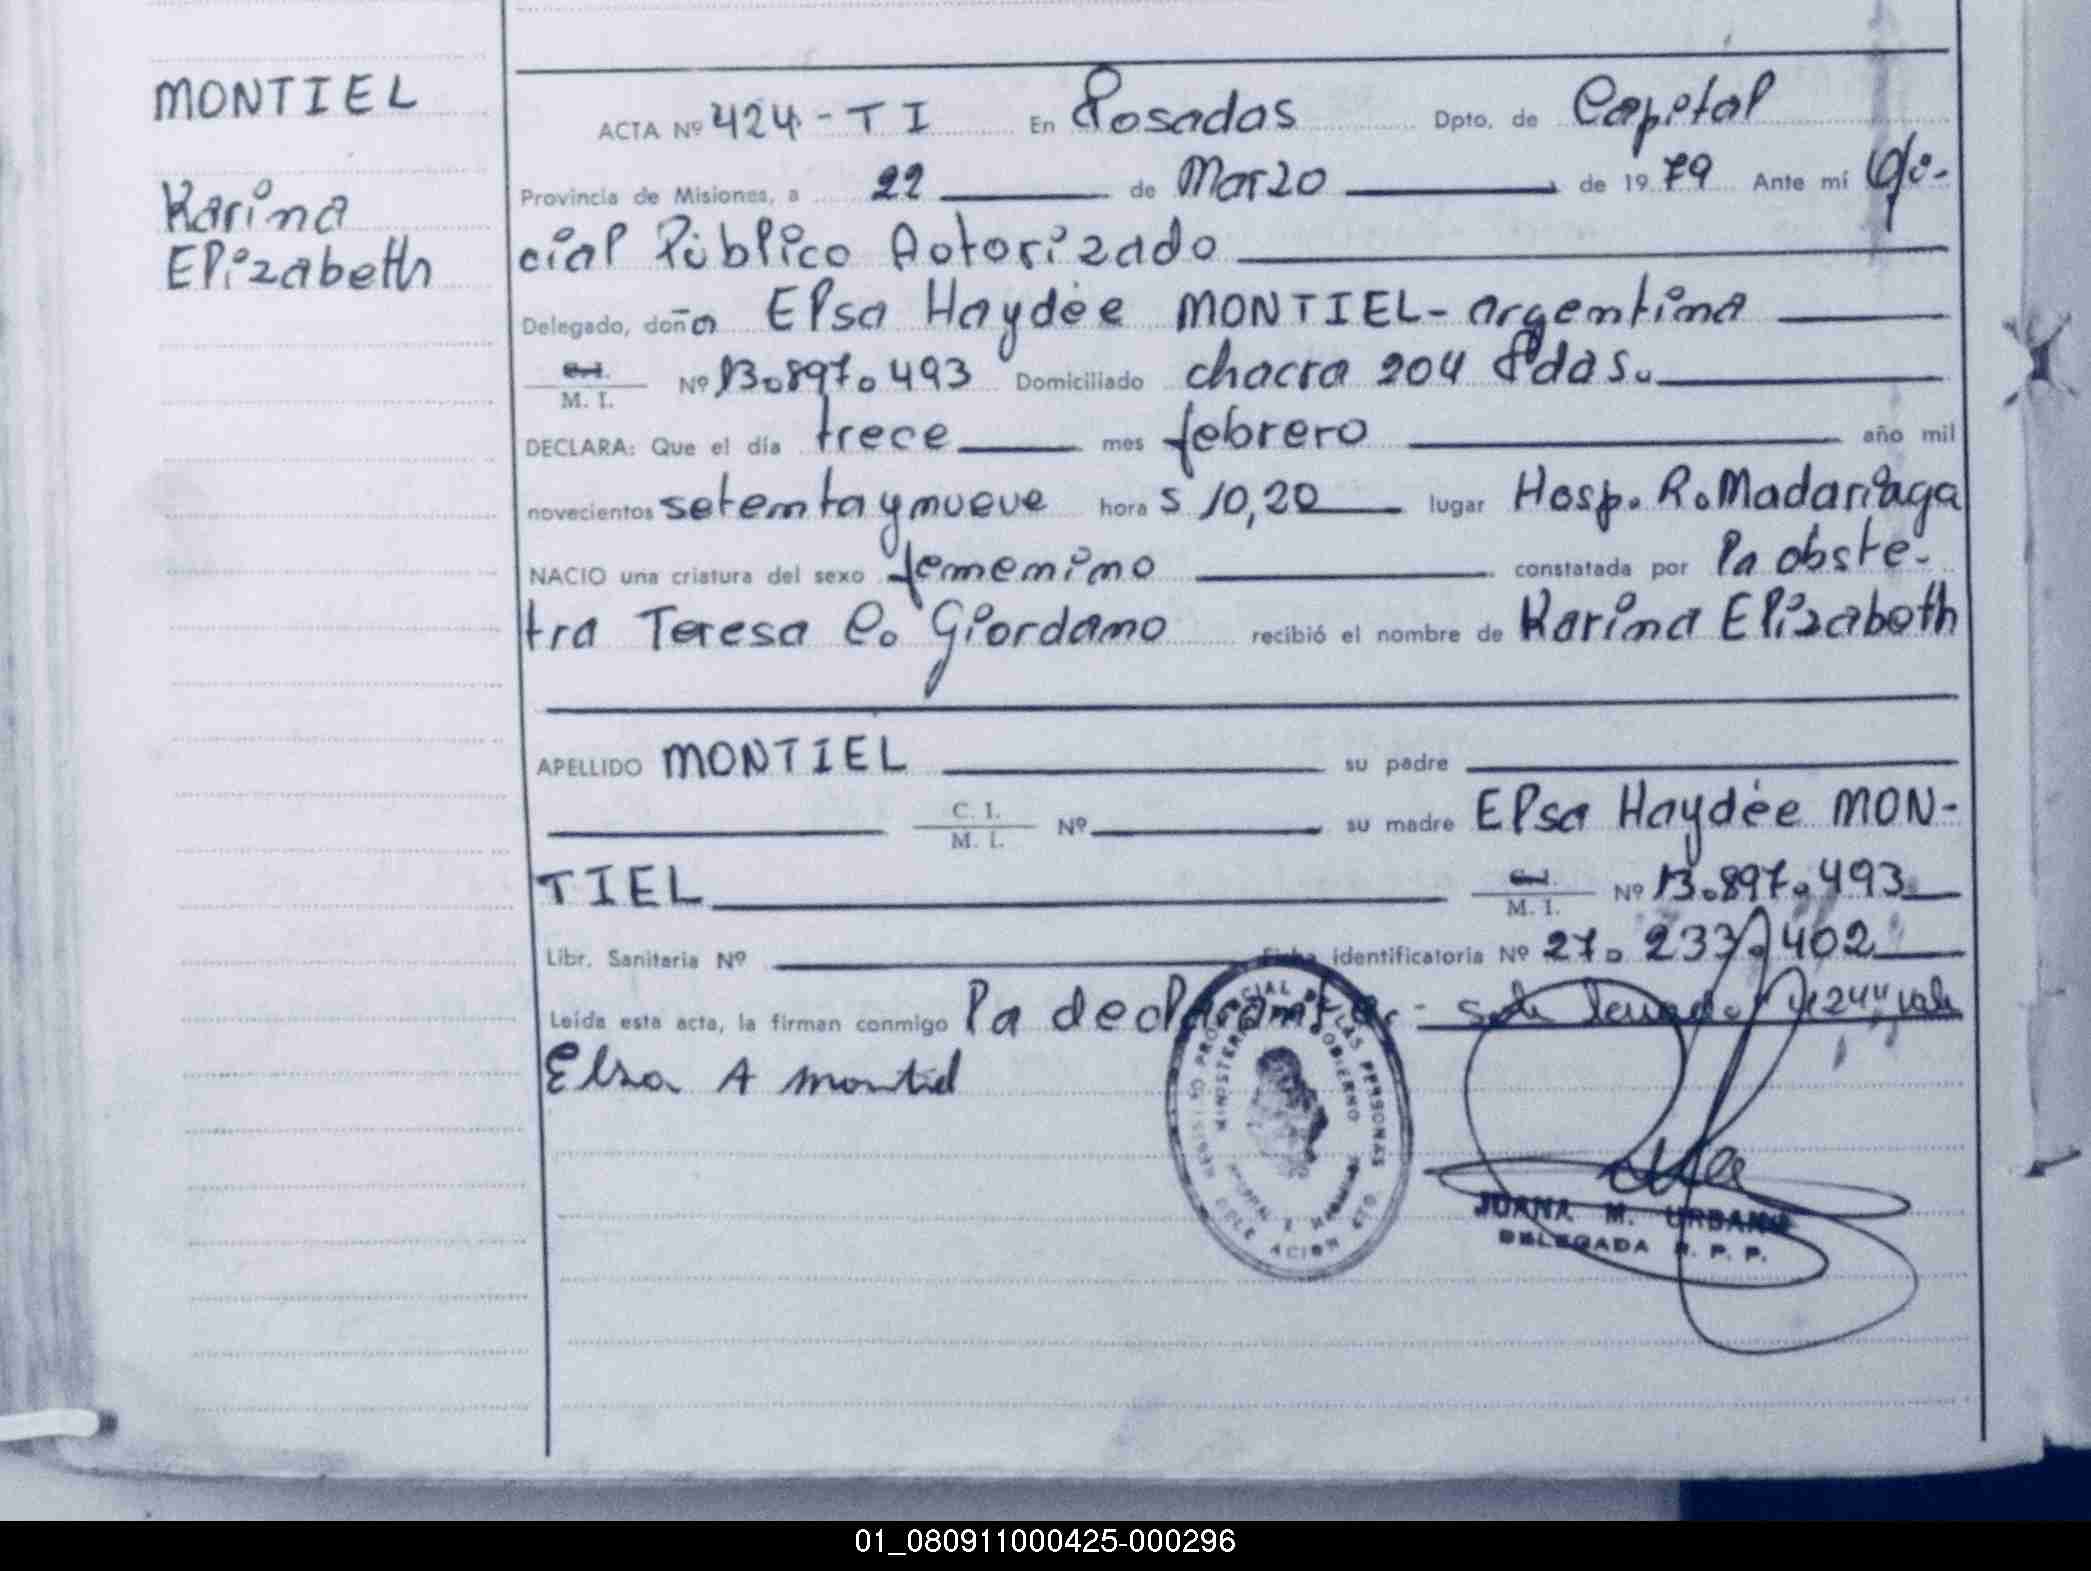 MONTIEL
Karina
Elizabeth
ACTA Nº 424-TI En Posadas Dpto. de Capital
Provincia de Misiones, a 22 de Marzo de 1979 Ante mí Ofi-
cial Público Autorizado
Delegado, doña Elsa Haydée MONTIEL- argentina
C.I. M. I. Nº 13.897.493 Domiciliado chacra 204 Pdas.
DECLARA: Que el día trece mes febrero año mil
novecientos setenta y nueve hora s 10,20 lugar Hosp. R. Madariaga
NACIO una criatura del sexo femenino constatada por la obste-
tra Teresa C. Giordano recibió el nombre de Karina Elizabeth
APELLIDO MONTIEL su padre
C. I. M. I. Nº su madre Elsa Haydée MON-
TIEL C.I. M. I. Nº 13.897.493
Libr. Sanitaria Nº Ficha identificatoria Nº 27.233.402
Leída esta acta, la firman conmigo la declarante.-
Elsa A montiel
REGISTRO PROVINCIAL DE LAS PERSONAS
MINISTERIO GOBIERNO
DELEGACION
JUANA M. URBANO
DELEGADA R. P. P.
01_080911000425-000296